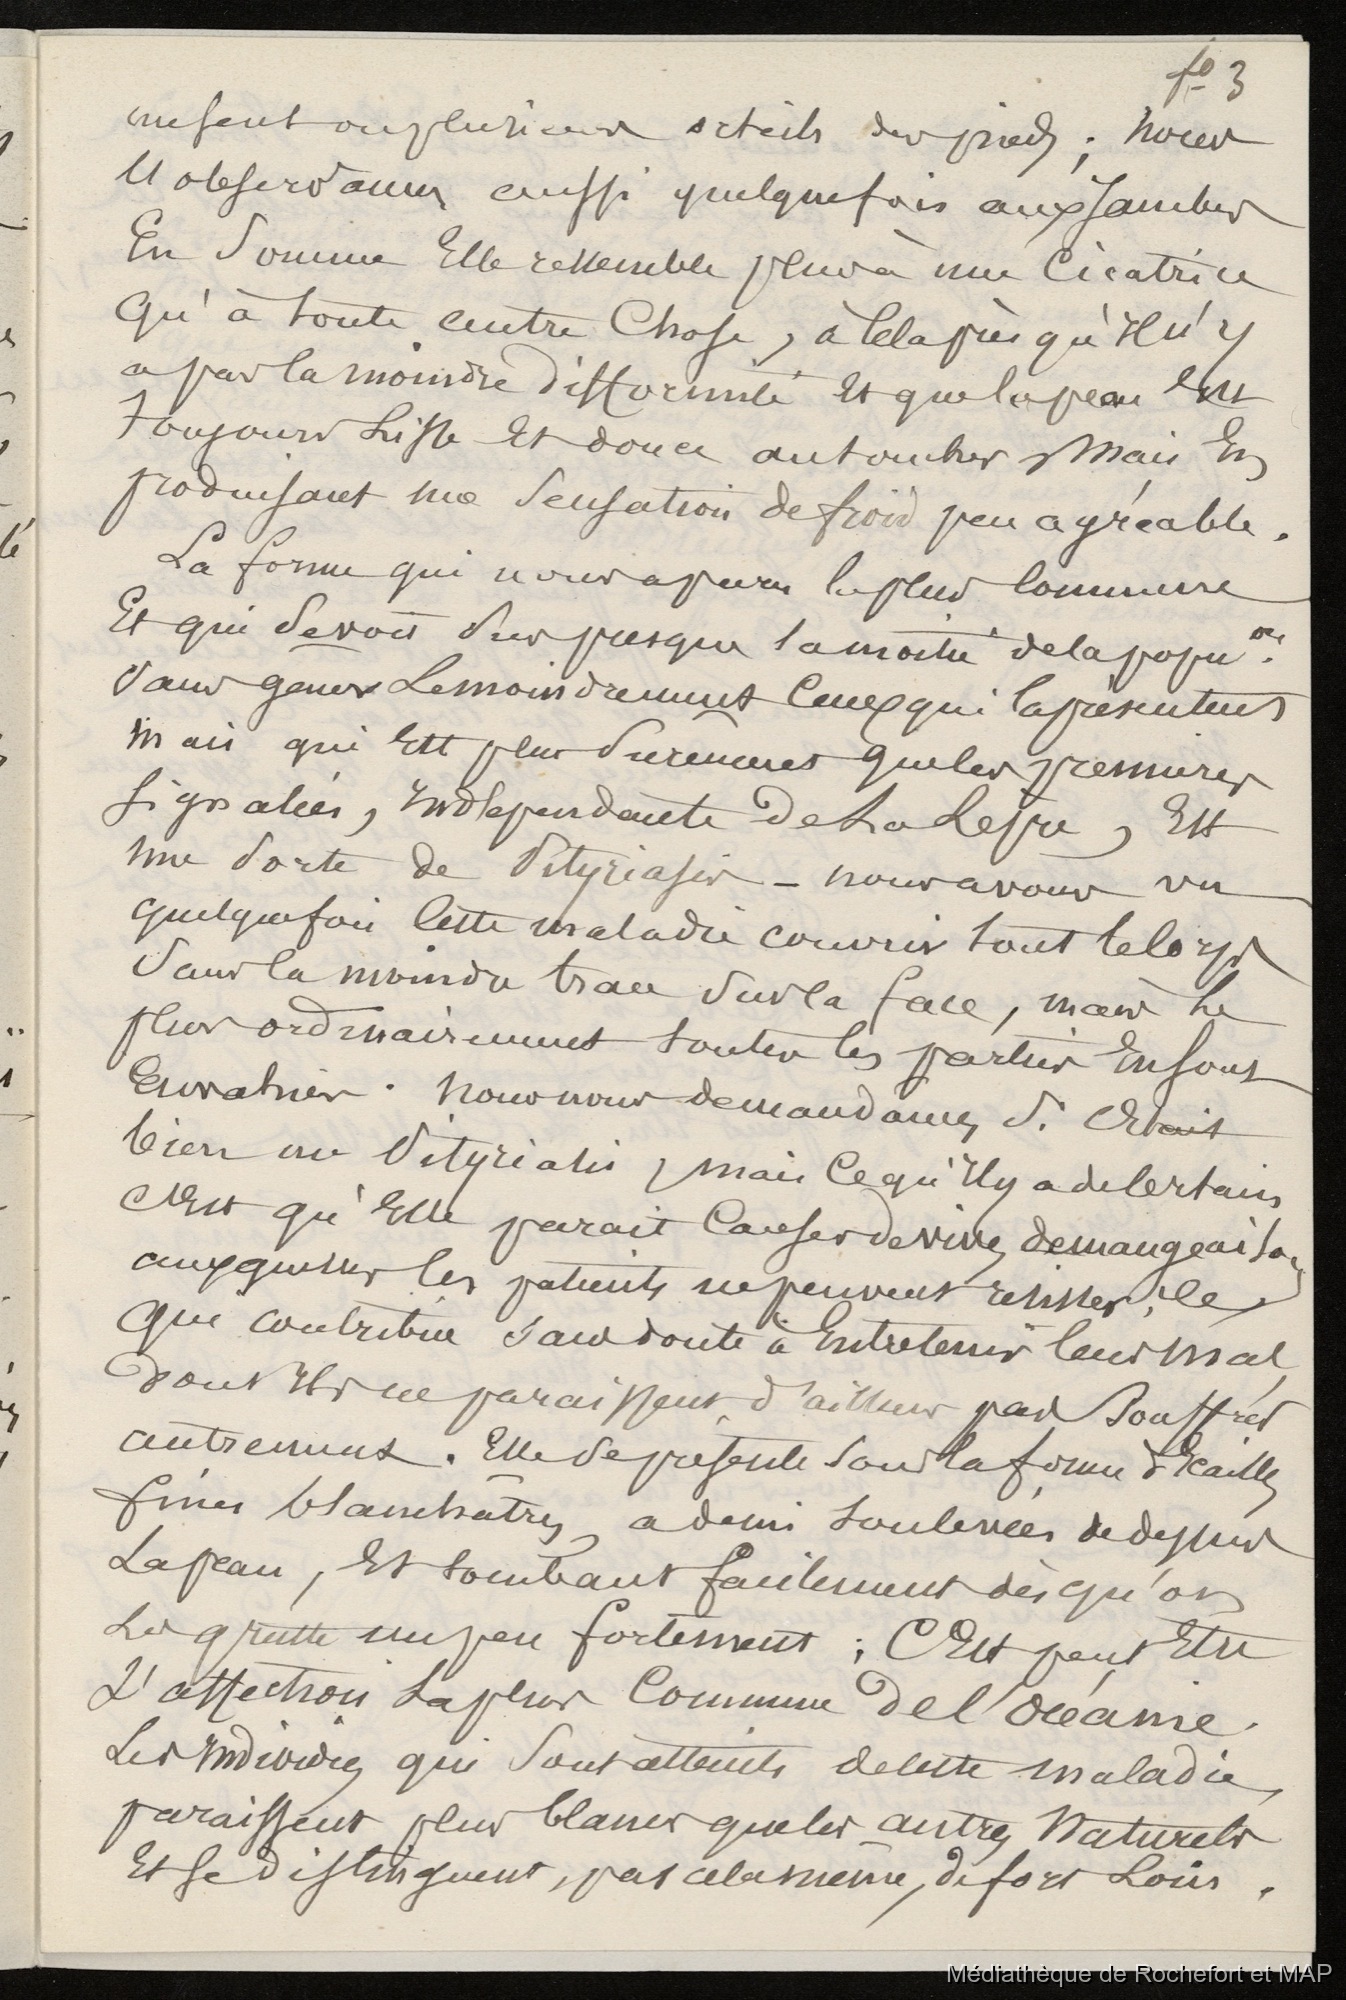 fo 3
ou plusieurs orteils des pieds ; Nous
l'observâmes aussi quelquefois aux Jambes
En Somme Elle ressemble plus à une Cicatrice
qu'à toute autre Chose, à Cela près qu'Il n'y
a pas la moindre difformité Et que la peau Est
toujours Lisse Et douce au toucher, Mais En
produisant une Sensation de froid peu agréable.
La forme qui nous a paru la plus Commune
Et qui sévit Sur presque la moitié de la popuon.
Sans gêner Le moindrement Ceux qui la présentent
Mais qui Est plus Surement que les premières
Signalées, Indépendante De La Lèpre, Est
une Sorte de Pityriasis - nous avons vu
quelquefois Cette maladie couvrir tout le Corps
Sans la moindre trace Sur la face, mais Le
plus ordinairement toutes les parties En sont
Envahies. Nous nous demandâmes Si C'Etait
bien un Pityriasis, mais Ce qu'Il y a de Certain
C'Est qu'Elle parait Causer de vives démangeaisons
auxquelles les patients ne peuvent résister, Ce
qui contribue sans doute à Entretenir leur Mal,
Dont Ils ne paraissent d'ailleurs pas Souffrir
autrement. Elle Se présente Sous la forme d'Ecailles
fines blanchâtres, a demi Soulevées de dessus
La peau, Et tombant facilement dès qu'on
Les gratte un peu fortement ; C'Est peut Etre
L'affection La plus Commune De l'Océanie.
Les Individus qui Sont atteints de Cette maladie,
paraissent plus blancs que les autres Naturels
Et Se distinguent, par cela même, de fort Loin.
Médiathèque de Rochefort et MAP